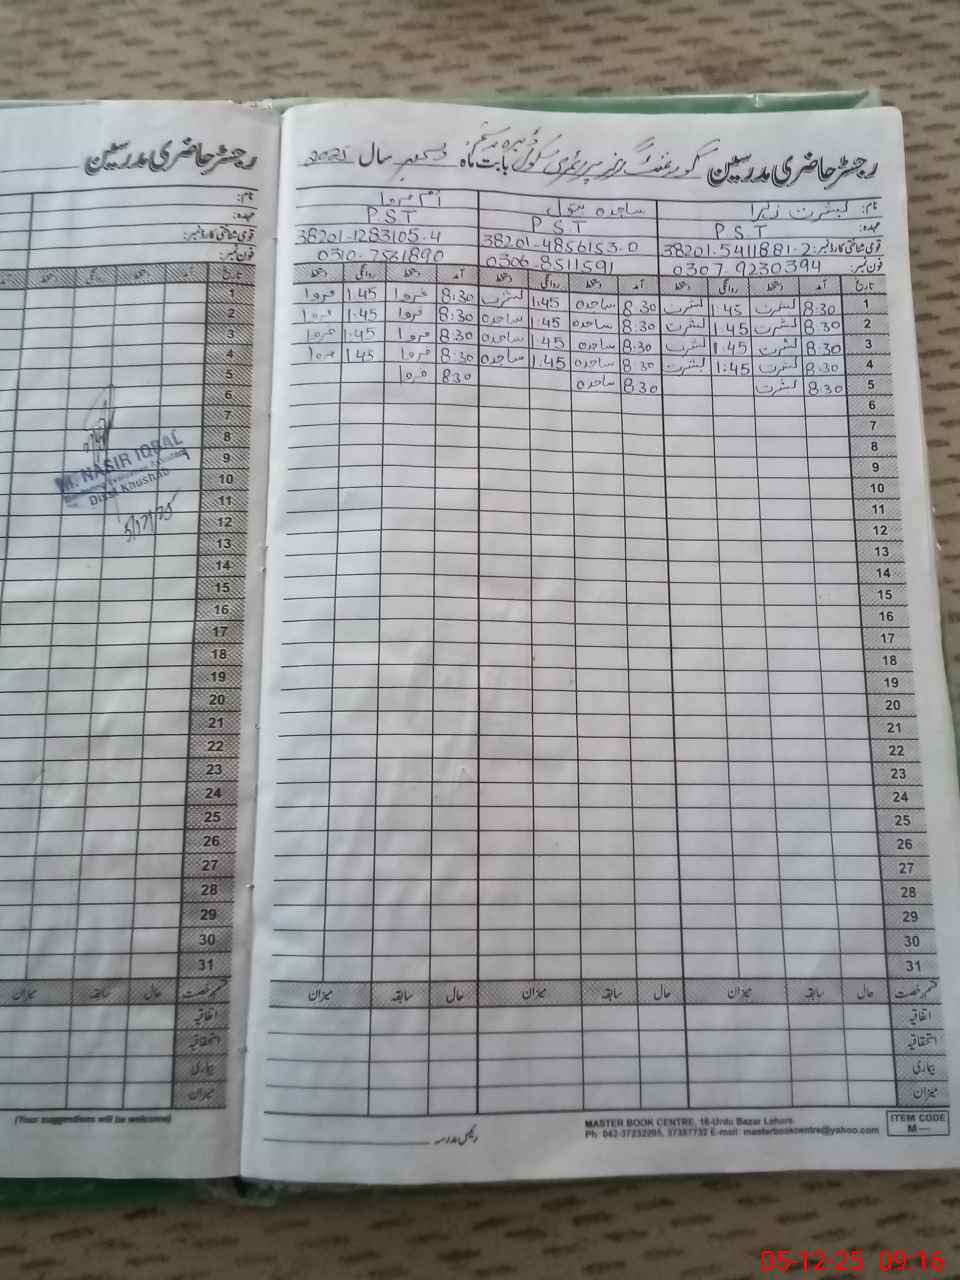 رجسٹر حاضری مدرسین گورنمنٹ گرلز پرائمری سکول بابت ماہ دسمبر سال 2025
نام: بشرت زہرا ساجدہ بتول
عہدہ: PST PST PST
قومی شناختی کارڈ نمبر: 38201-5411881-2 38201-4856153-0 38201-1283105-4
فون نمبر: 0307-9230394 0306-8511591 0310-7561890
تاریخ آمد دستخط روانگی دستخط آمد دستخط روانگی دستخط آمد دستخط روانگی دستخط
1 8:30 بشرت 1:45 بشرت 8:30 ساجدہ 1:45 بشرت 8:30 فروا 1:45 فروا
2 8:30 بشرت 1:45 بشرت 8:30 ساجدہ 1:45 ساجدہ 8:30 فروا 1:45 فروا
3 8:30 بشرت 1:45 بشرت 8:30 ساجدہ 1:45 ساجدہ 8:30 فروا 1:45 فروا
4 8:30 بشرت 1:45 بشرت 8:30 ساجدہ 1:45 ساجدہ 8:30 فروا 1:45 فروا
5 8:30 بشرت 8:30 ساجدہ 8:30 فروا
6
7
8
9
10
11
12
13
14
15
16
17
18
19
20
21
22
23
24
25
26
27
28
29
30
31
قسم رخصت حال سابقہ میزان حال سابقہ میزان حال سابقہ میزان
اتفاقیہ
استحقاقیہ
بیماری
میزان
رئیس مدرسہ
MASTER BOOK CENTRE, 16-Urdu Bazar Lahore.
Ph: 042-37232295, 37357732 E-mail: masterbookcentre@yahoo.com
ITEM CODE
M—
رجسٹر حاضری مدرسین
نام:
عہدہ:
قومی شناختی کارڈ نمبر:
فون نمبر:
تاریخ آمد دستخط روانگی دستخط
1
2
3
4
5
6
7
8
9
10
11
12
13
14
15
16
17
18
19
20
21
22
23
24
25
26
27
28
29
30
31
M. NASIR IQBAL
Distt Khushab
5/12/25
قسم رخصت حال سابقہ میزان
اتفاقیہ
استحقاقیہ
بیماری
میزان
(Your suggestions will be welcome)
05-12-25 09:16